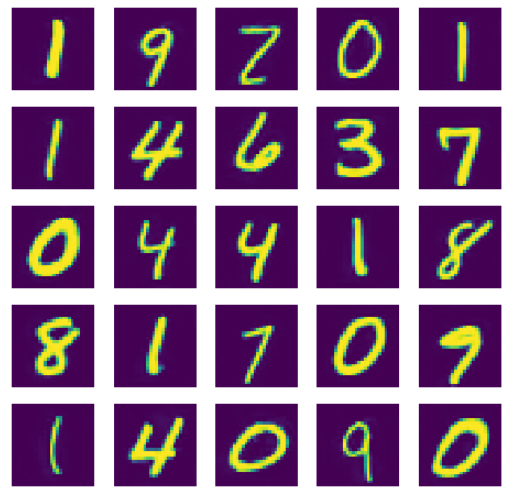 1 9 2 0 1
1 4 6 3 7
0 4 4 1 8
8 1 7 0 9
1 4 0 9 0